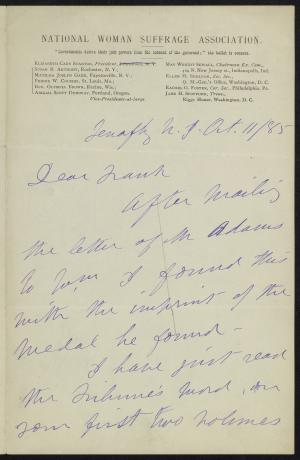 NATIONAL WOMAN SUFFRAGE ASSOCIATION.
"Governments derive their just powers from the consent of the governed;" the ballot is consent.
ELIZABETH CADY STANTON, President,
SUSAN B. ANTHONY, Rochester, N. Y.;
MATILDA JOSLYN GAGE, Fayetteville, N. Y.;
PHOEBE W. COUZINS, St. Louis, Mo.;
REV. OLYMPIA BROWN, Racine, Wis.;
ABIGAIL SCOTT DUNIWAY, Portland, Oregon.
Vice-Presidents-at-large.
MAY WRIGHT SEWALL, Chairman Ex. Com.,
N. New Jersey st., Indianapolis, Ind.
ELLEN H. SHELDON, Sec. Sec.,
Q. M.-Gen.'s Office, Washington, D. C.
RACHEL G. FOSTER, Cor. Sec., Philadelphia, Pa.
JANE H. SPOFFORD, Treas.,
Riggs House, Washington, D. C.
Tenafly N. J. Oct. 11/85
Dear Frank
After mailing
the letter of Mr Adams
to you I found this
with the imprint of the
medal he found -
I have just read
the Tribune's word, on
your first two volumes